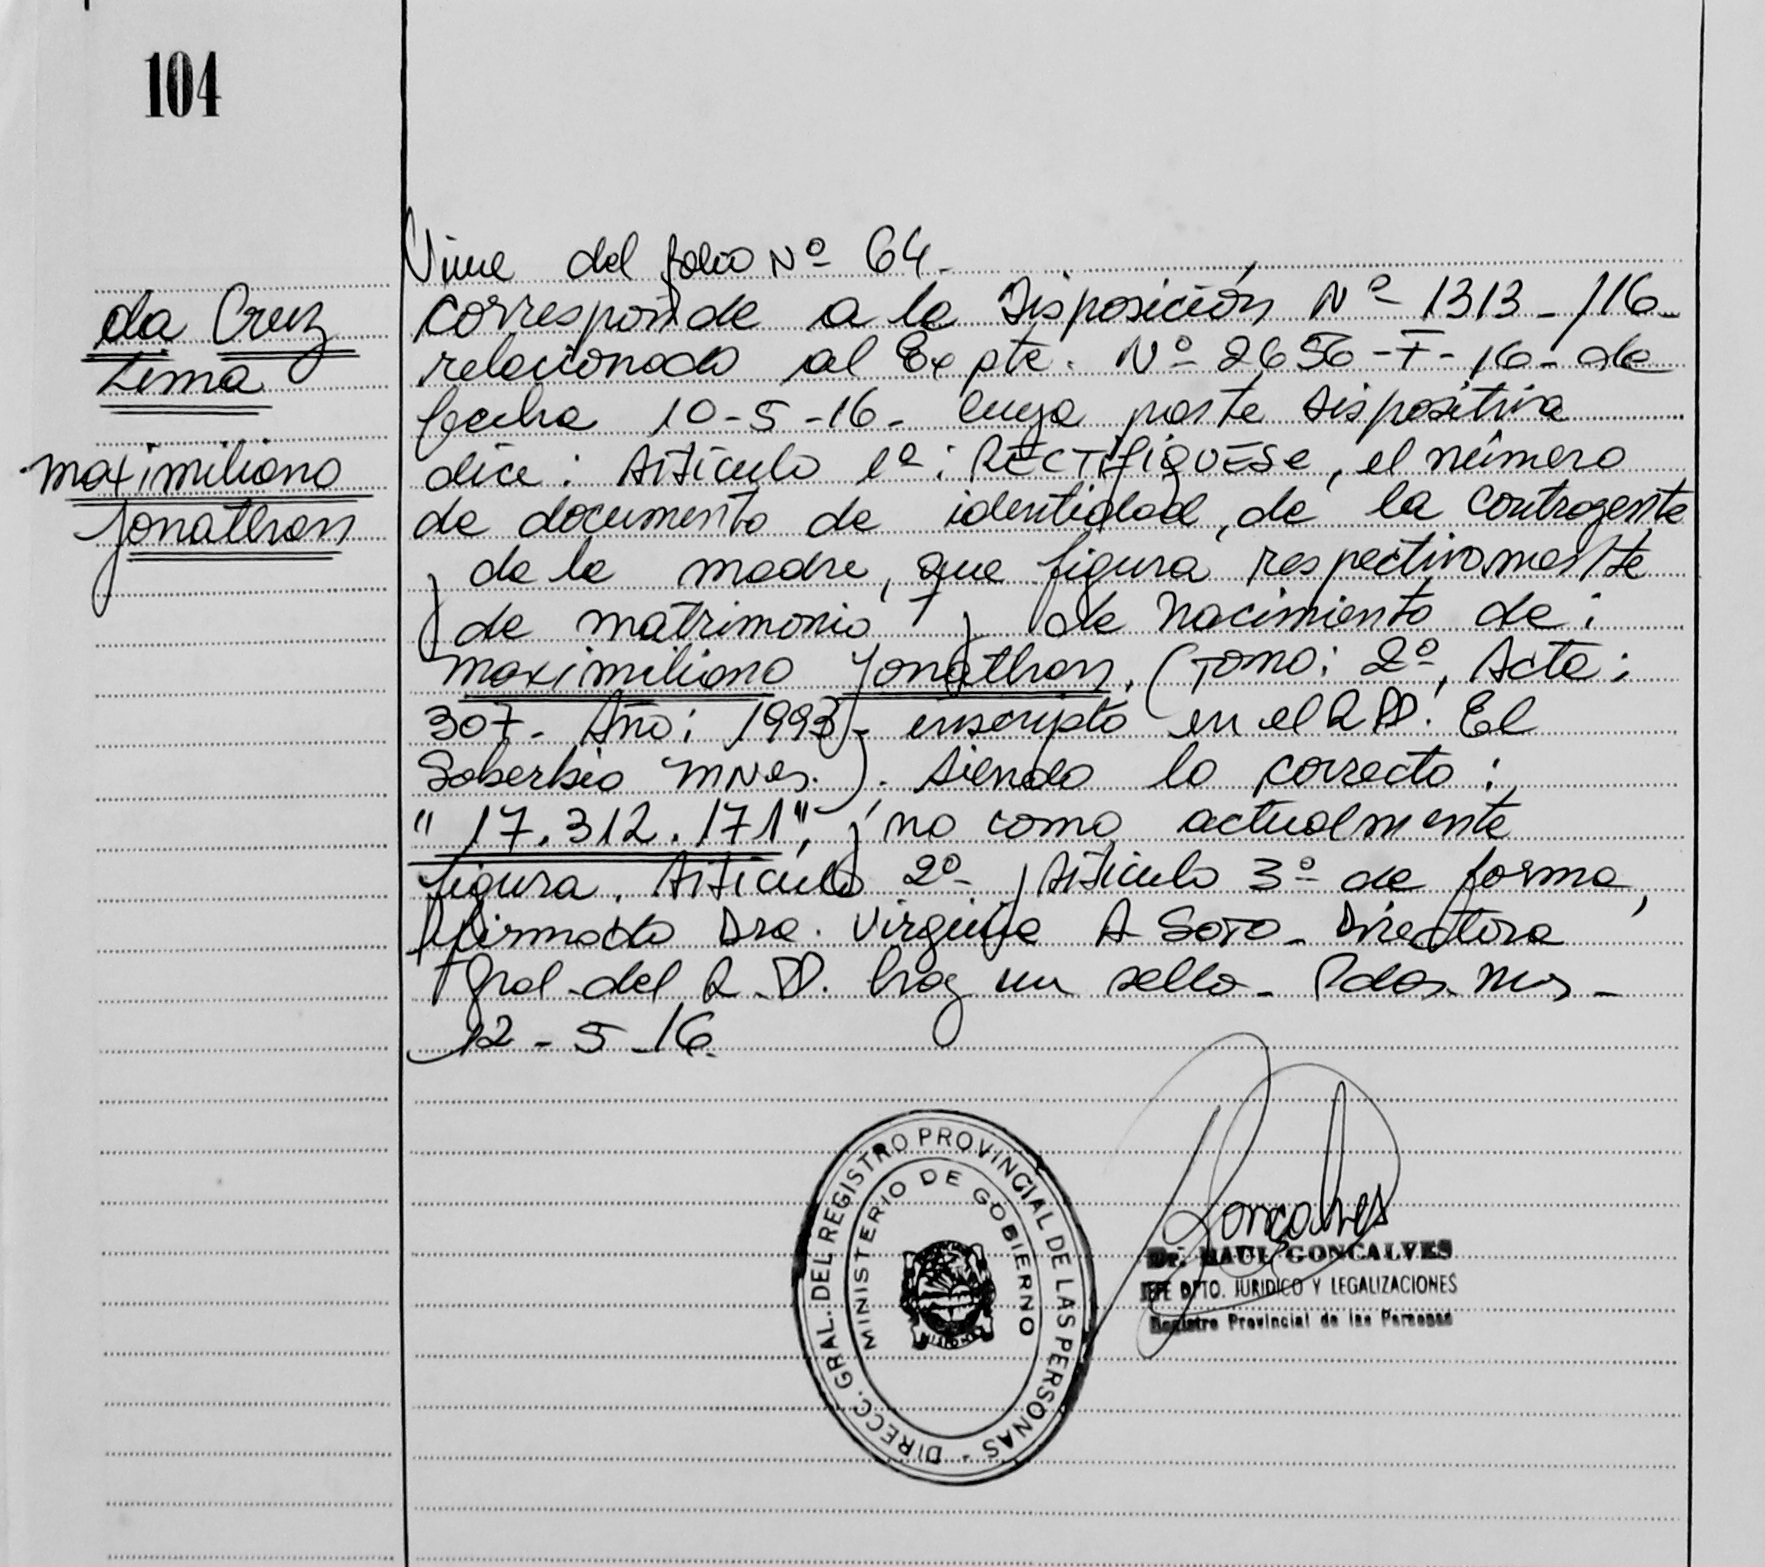 104
Viene del folio Nº 64.
da Cruz
Lima
Maximiliano
Jonathan
Corresponde a la Disposición Nº 1313-/16-
relacionado al Expte. Nº 2656-F-16- de
fecha 10-5-16- cuya parte dispositiva
dice: Artículo 1º: RECTIFIQUESE, el número
de documento de identidad, de la contrayente
y de la madre, que figura respectivamente
de matrimonio y de nacimiento de:
Maximiliano Jonathan. (Tomo: 2º, Acta:
307- Año: 1993- inscripto en el R.P.P. El
Soberbio Mnes.). Siendo lo correcto:
"17.312.171", y no como actualmente
figura. Artículo 2º y Artículo 3º de forma,
firmado Dra. Virginia A Soto- Directora
Gral. del R.P.P. hay un sello- Pdas. Mns-
12-5-16.
Goncalves
Dr. RAUL GONCALVES
JEFE DPTO. JURIDICO Y LEGALIZACIONES
Registro Provincial de las Personas
DIRECC. GRAL. DEL REGISTRO PROVINCIAL DE LAS PERSONAS -
MINISTERIO DE GOBIERNO